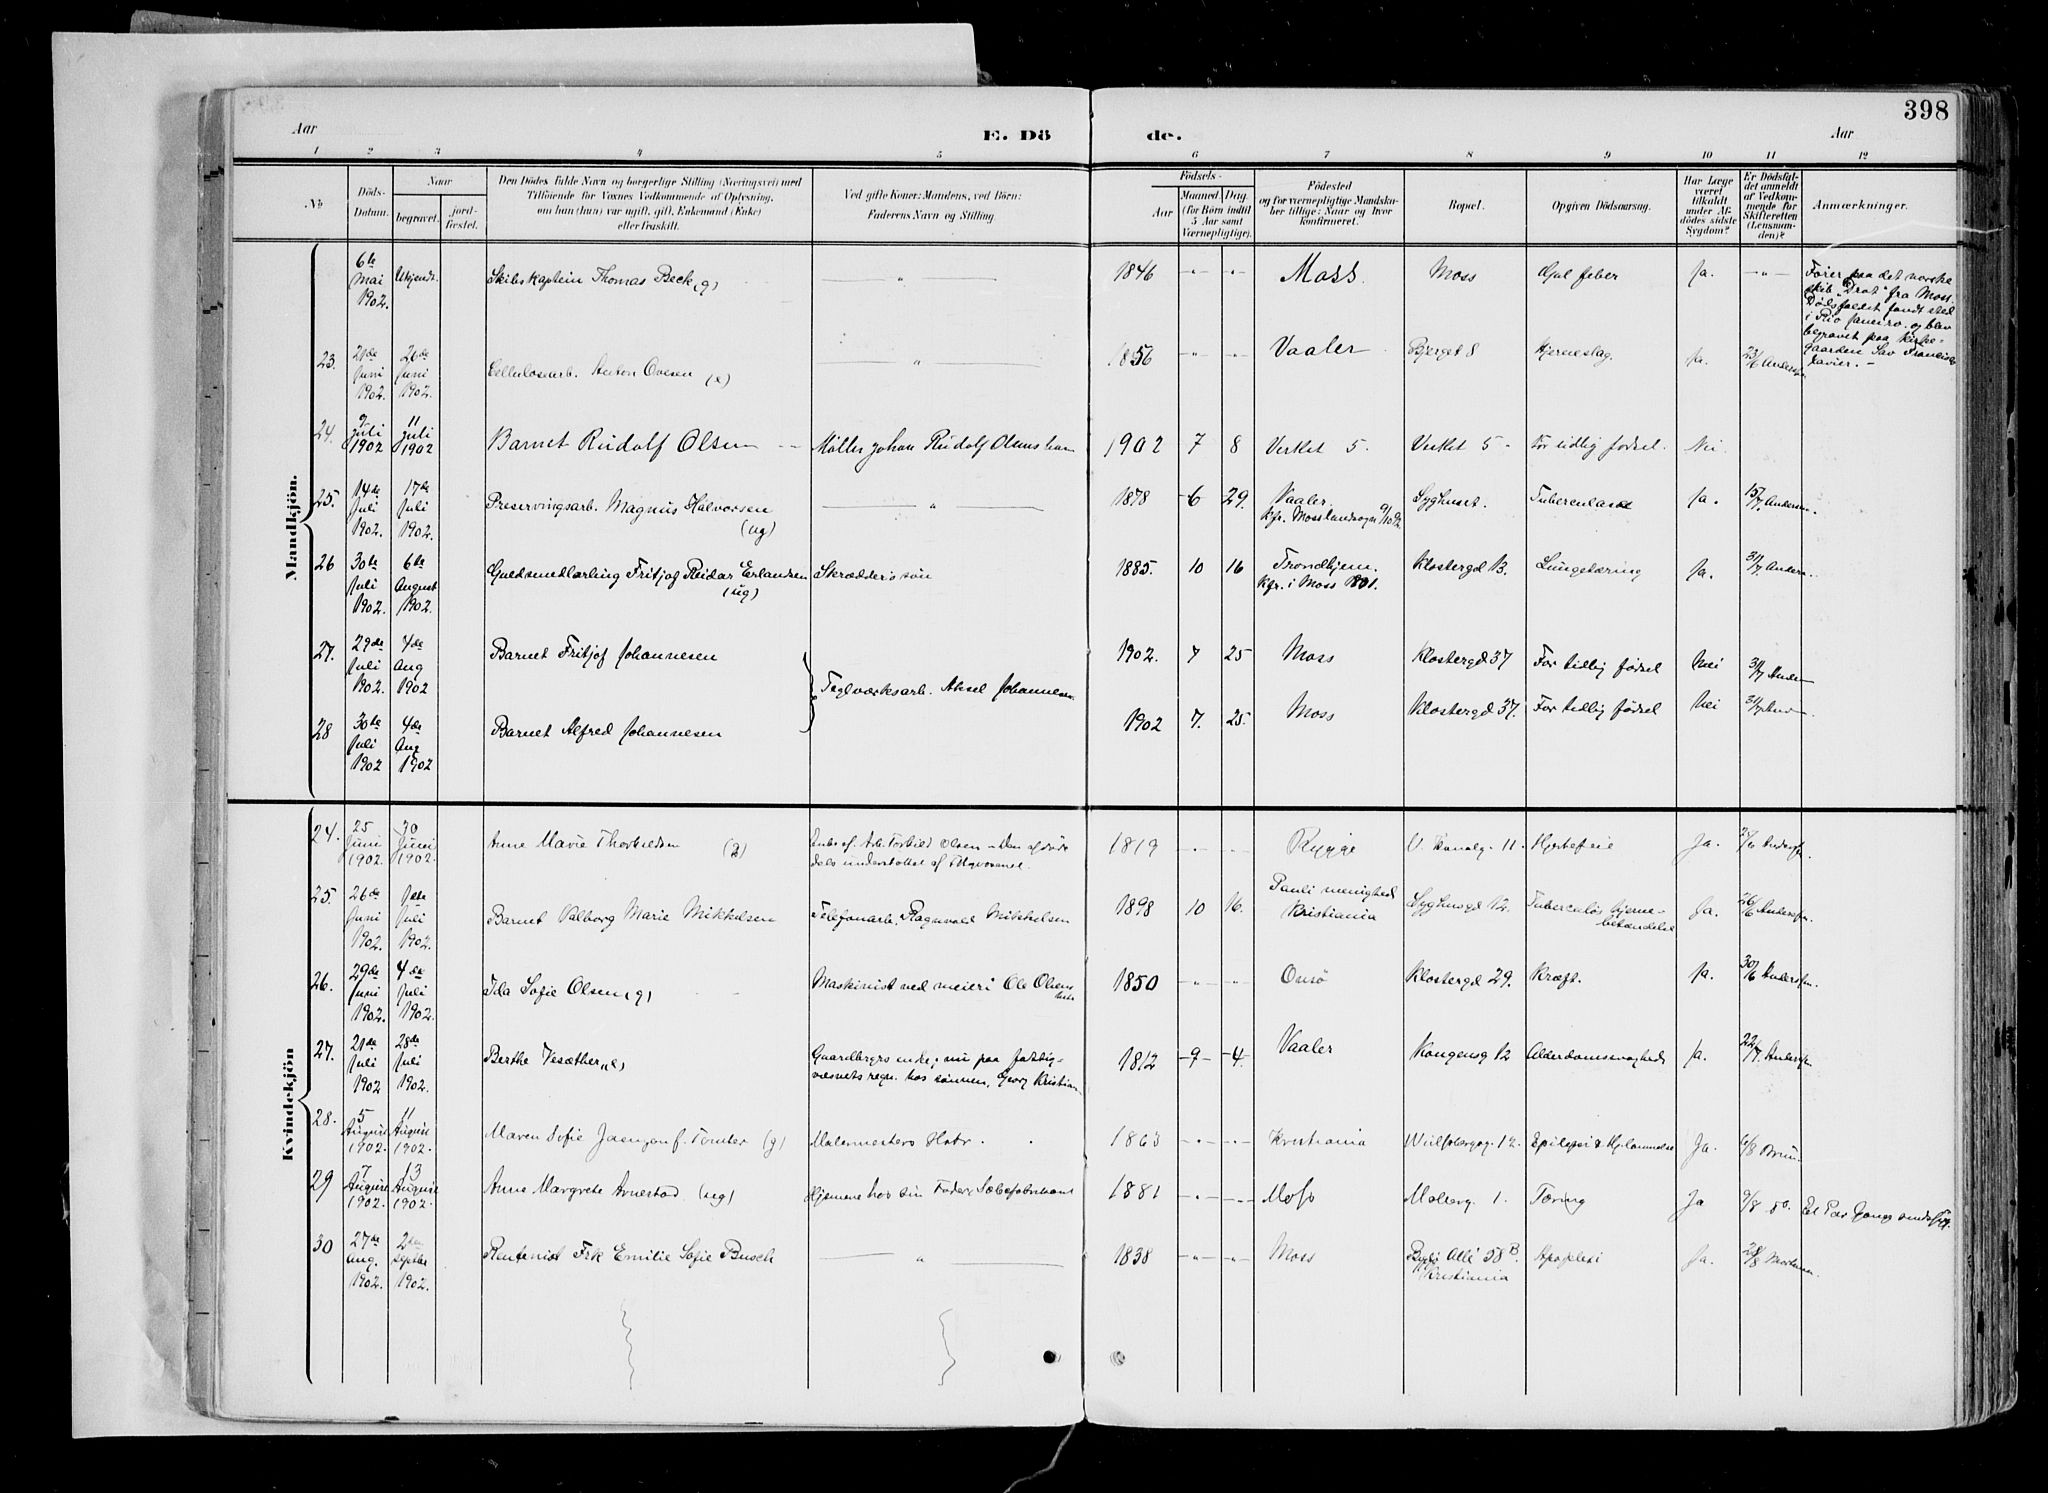 398
Aar
E. Dö
de.
Aar
1 2 3 4 5 6 7 8 9 10 11 12
No
Döds-
Datum.
Naar
begravet.
jord-
fæstet.
Den Dödes fulde Navn og borgerlige Stilling (Næringsvei) med
Tilföiende for Voxnes Vedkommende af Oplysning,
om han (hun) var ugift, gift, Enkemand (Enke)
eller fraskilt.
Ved gifte Koner: Mandens, ved Börn:
Faderens Navn og Stilling.
Födsels-
Aar
Maaned.
Dag.
(for Börn indtil
5 Aar samt
Værnepligtige).
Födested
og for værnepligtige Mandskaber
tillige: Naar og hvor
konfirmeret.
Bopæl.
Opgiven Dödsaarsag.
Har Læge
været
tilkaldt
under Afdödes
sidste
Sygdom?
Er Dödsfaldet
anmeldt
af Vedkommende
for
Skifteretten
(Lensmanden)?
Anmærkninger.
Mandkjön.
6te Mai 1902. Ukjendt. Skibskaptein Thomas Beck (g) — " — 1846 - " - - " - Moss. Moss Gul feber Ja. - " -
Fører paa det norske
skib "Drot" fra Moss.
Dødsfaldet fandt sted
i Rio Janeiro og blev
begravet paa kirke-
gaarden Sav Francisko
Xavier. -
23. 21de Juni 1902. 26de Juni 1902. Cellulosearb. Anton Ovesen (e) — " — 1856 - " - - " - Vaaler Bjerget 8 Hjerneslag. Ja. 23/6 Andersen
24. 9 Juli 1902 11 Juli 1902 Barnet Rudolf Olsen Møller Johan Rudolf Olsens barn 1902 7 8 Verket 5. Verket 5 - For tidlig fødsel. Nei.
25. 14de Juli 1902. 17de Juli 1902. Preservingsarb. Magnus Halvorsen (ug) — " — 1878 - 6 29. Vaaler. Kfr. Moss landsogn Syghuset. Tuberculose Ja. 15/7 Andersen.
26 30te Juli 1902. 6te August 1902. Guldsmedlærling Fritjof Reidar Erlandsen (ug) Skrædders søn 1885. 10 16 Trondhjem. Kfr. i Moss 1901. Klostergd 13. Lungetæring Ja. 31/7 Anders.
27. 29de Juli 1902. 4de Aug 1902 Barnet Fritjof Johannesen 1902. 7 25 Moss Klostergd 37 For tidlig fødsel Nei 31/7 Ander
Teglværksarb. Aksel Johannesen
28 30te Juli 1902 4de Aug 1902 Barnet Alfred Johannesen 1902 7. 25. Moss Klostergd 37. For tidlig fødsel Nei 31/7 And
Kvindekjön
24. 25 Juni 1902. 30 Juni 1902. Anne Marie Thorkildsen Enke af Arb. Torkild Olsen - Den afdøde
dels understøttet af Fattigvæsenet 1819 - " - - " - Rygge V. Kanalg. 11. Hjertefeil Ja. Andersen.
25. 26de Juni 1902. 1ste Juli 1902. Barnet Valborg Marie Mikkelsen Telefonarb. Ragnvald Mikkelsen 1898 10 16. Pauli menighed Kristiania Syghusgd 12. Tuberculøs hjerne-
betændelse Ja. 26/6 Andersen.
26. 29de Juni 1902. 4de Juli 1902. Ida Sofie Olsen (g) Maskinist ved meieri Ole Olsens hstr. 1850 - " - - " - Onsø Klostergd 29. Kræft. Ja. 30/6 Andersen.
27. 21de Juli 1902 28de Juli 1902. Berthe Vesæther, (e) Gaardbrgrs enke; nu paa fattig-
væsnets regn. hos sønnen, Georg Kristian 1812 - 9 - - 4. Vaaler Kongensg 12 Alderdomssvaghed Ja. 22/7 Andersen
28. 5 August 1902. 11 August 1902. Maren Sofie Jaensen f. Tomter (g) Malermesters Hstr. 1863 - " - - " - Kristiania Wulfsbergsg. 12. Epilepsi & Hjlammelse Ja. 6/8 Bruu
29 7 August 1902. 13 August 1902. Anne Margrete Arnestad (ug) Hjemme hos sin Fader, Sæbefabrikant 1881 - " - - " - Moss Molberg. 1. Tæring Ja 9/8 So.
30 27de Aug. 1902. 2den Septbr 1902. Rentenist Frk Emilie Sofie Busch — " — 1838 - " - - " - Moss Bygdø Allé 58 B. Kristiania Apoplexi Ja. 28/8